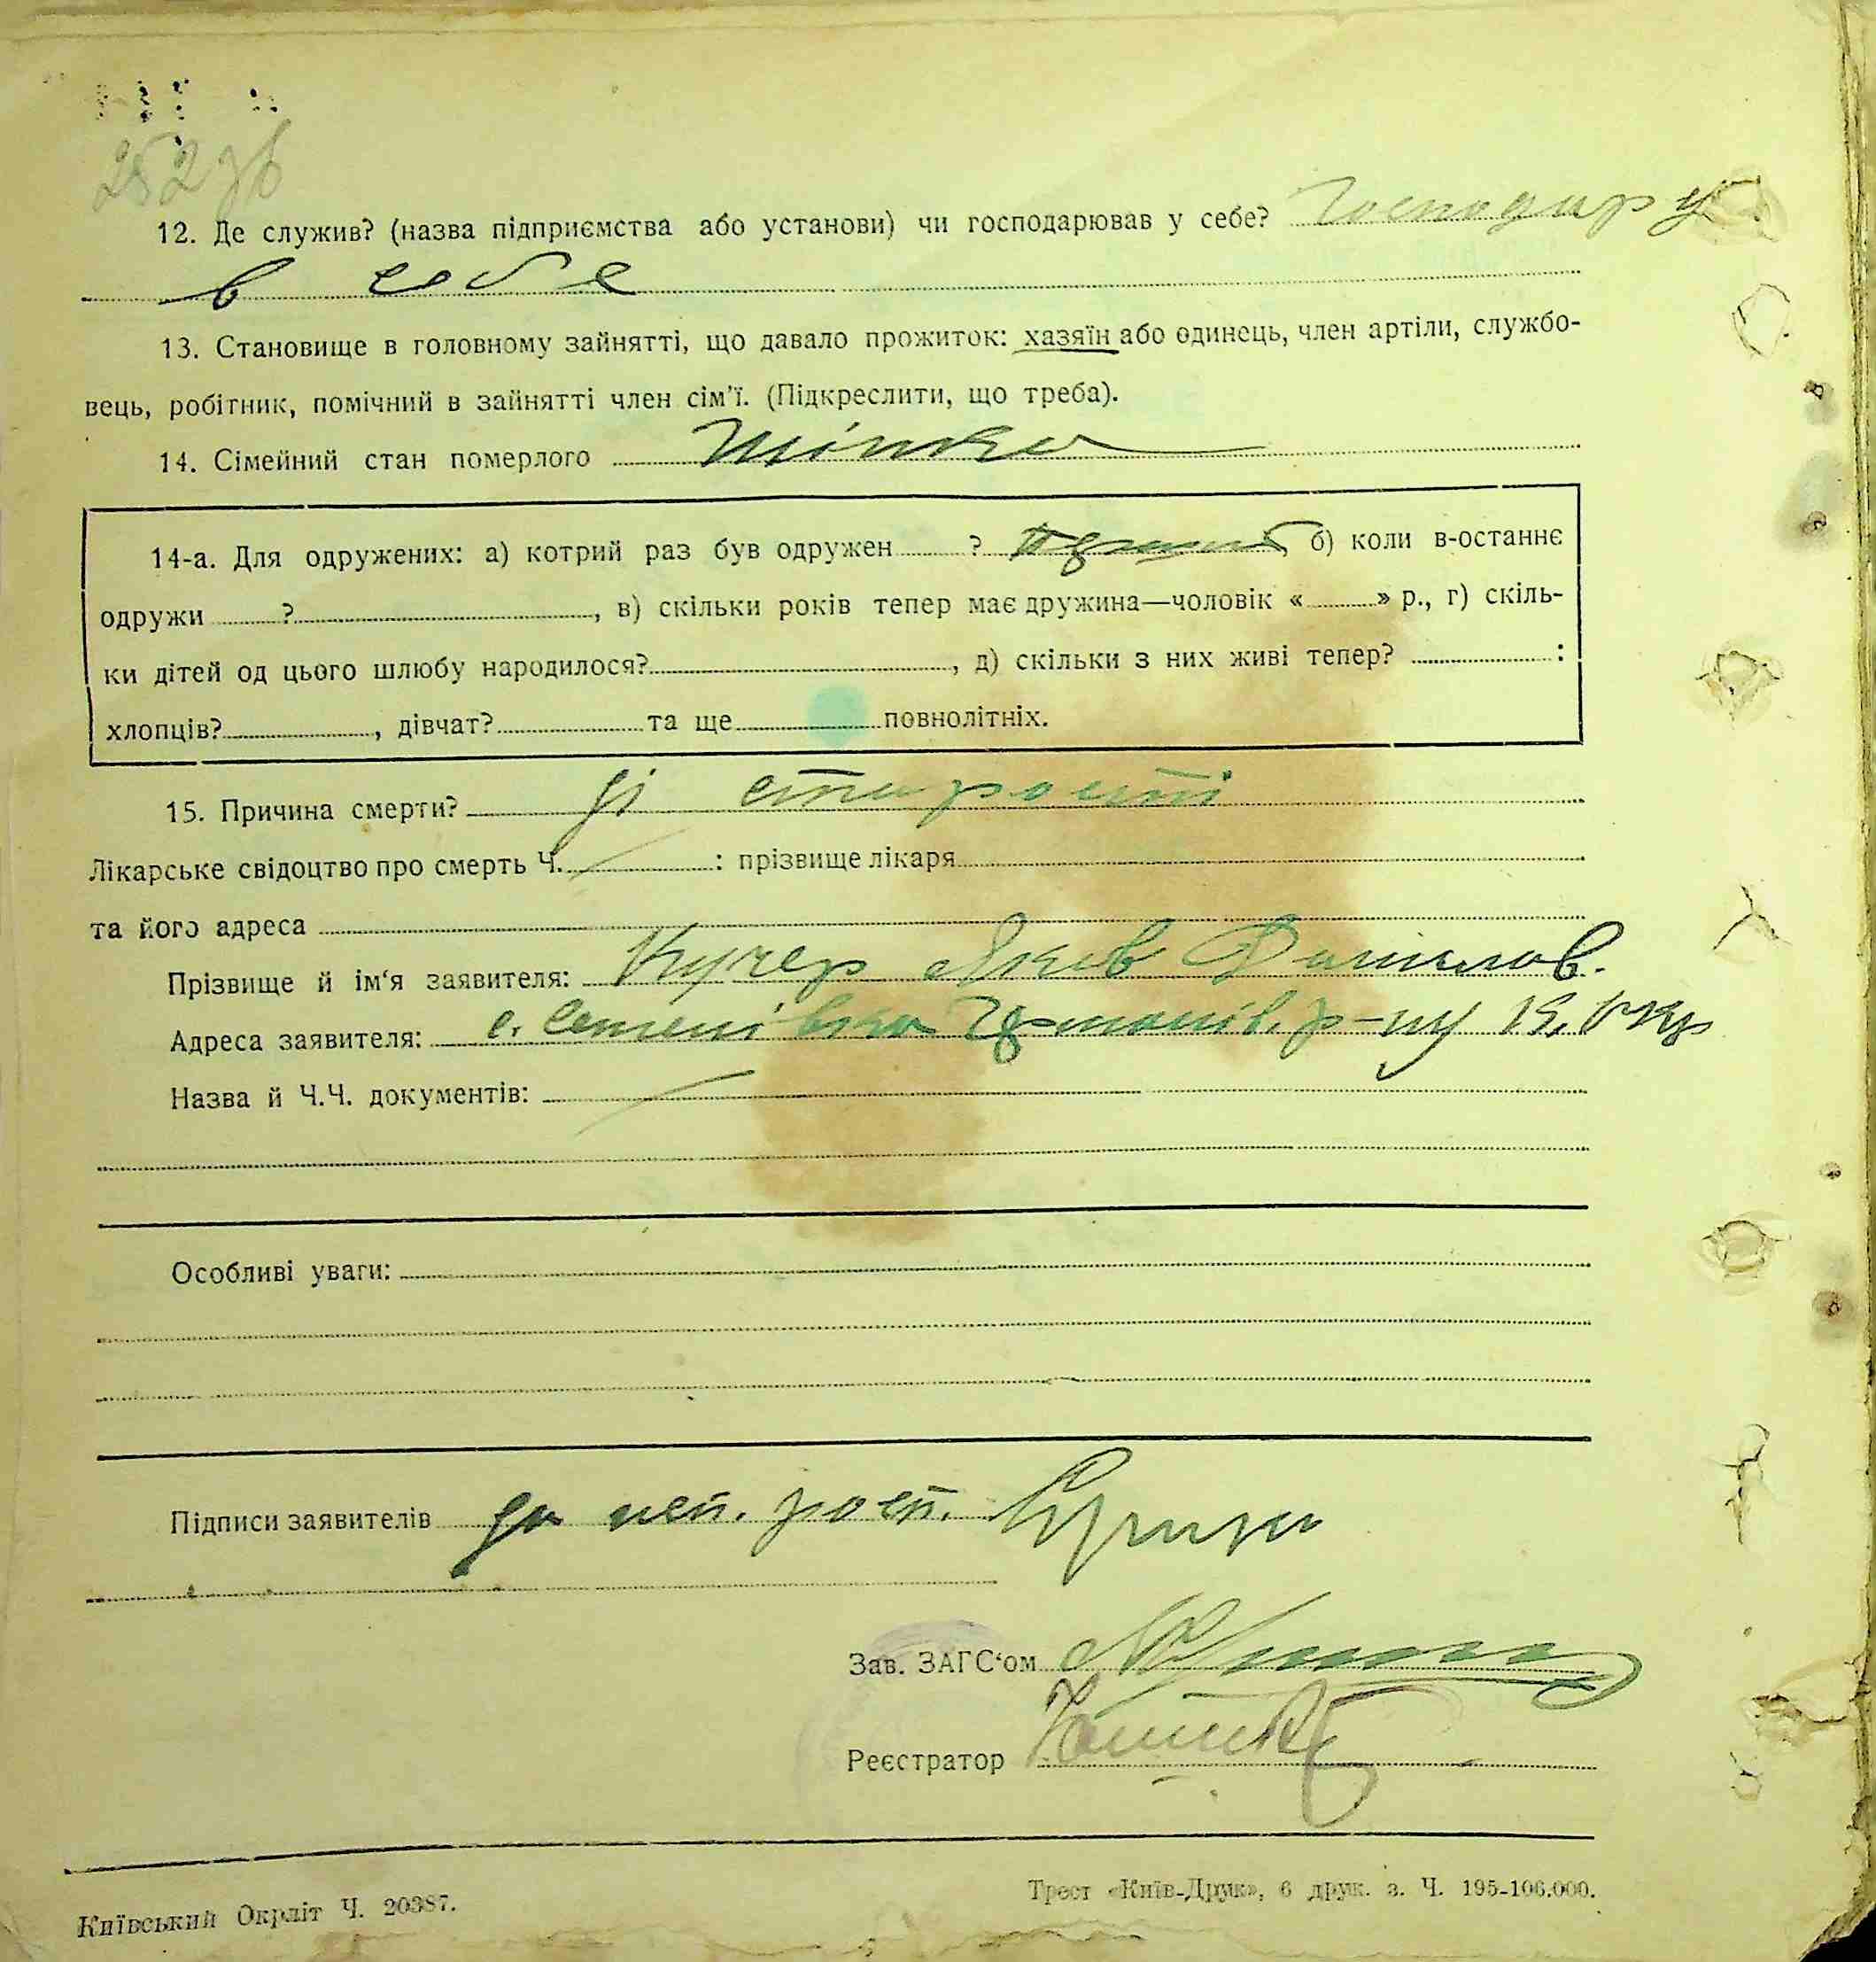 252 зв
12. Де служив? (назва підприємства або установи) чи господарював у себе? Господарує
в себе
13. Становище в головному зайнятті, що давало прожиток: хазяїн або одинець, член артіли, службо-
вець, робітник, помічний в зайнятті член сім'ї. (Підкреслити, що треба).
14. Сімейний стан померлого
14-а. Для одружених: а) котрий раз був одружен ? б) коли в-останнє
одружи ? , в) скільки років тепер має дружина—чоловік « » р., г) скіль-
ки дітей од цього шлюбу народилося? , д) скільки з них живі тепер? :
хлопців? , дівчат? та ще повнолітніх.
15. Причина смерти? зі старости
Лікарське свідоцтво про смерть Ч. : прізвище лікаря
та його адреса
Прізвище й ім'я заявителя: Кучер Яків Данилов.
Адреса заявителя: с. р-ну К. Окр
Назва й Ч.Ч. документів:
Особливі уваги:
Підписи заявителів за неп. розп.
Зав. ЗАГС'ом
Реєстратор
Київський Окрліт Ч. 20387.
Трест «Київ-Друк», 6 друк. з. Ч. 195-106.000.